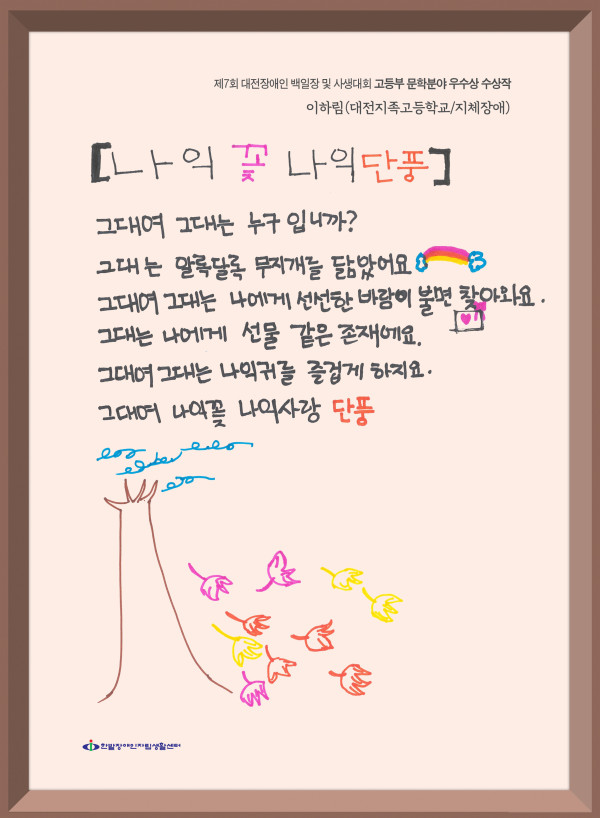 제7회 대전장애인 백일장 및 사생대회 고등부 문학분야 우수상 수상작
이하림(대전지족고등학교/지체장애)
[나의 꽃 나의 단풍]
그대여 그대는 누구 입니까?
그대는 알록달록 무지개를 닮았어요
그대여 그대는 나에게 선선한 바람이 불면 찾아와요.
그대는 나에게 선물 같은 존재에요.
그대여 그대는 나의귀를 즐겁게 하지요.
그대여 나의꽃 나의사랑 단풍
한밭장애인자립생활센터